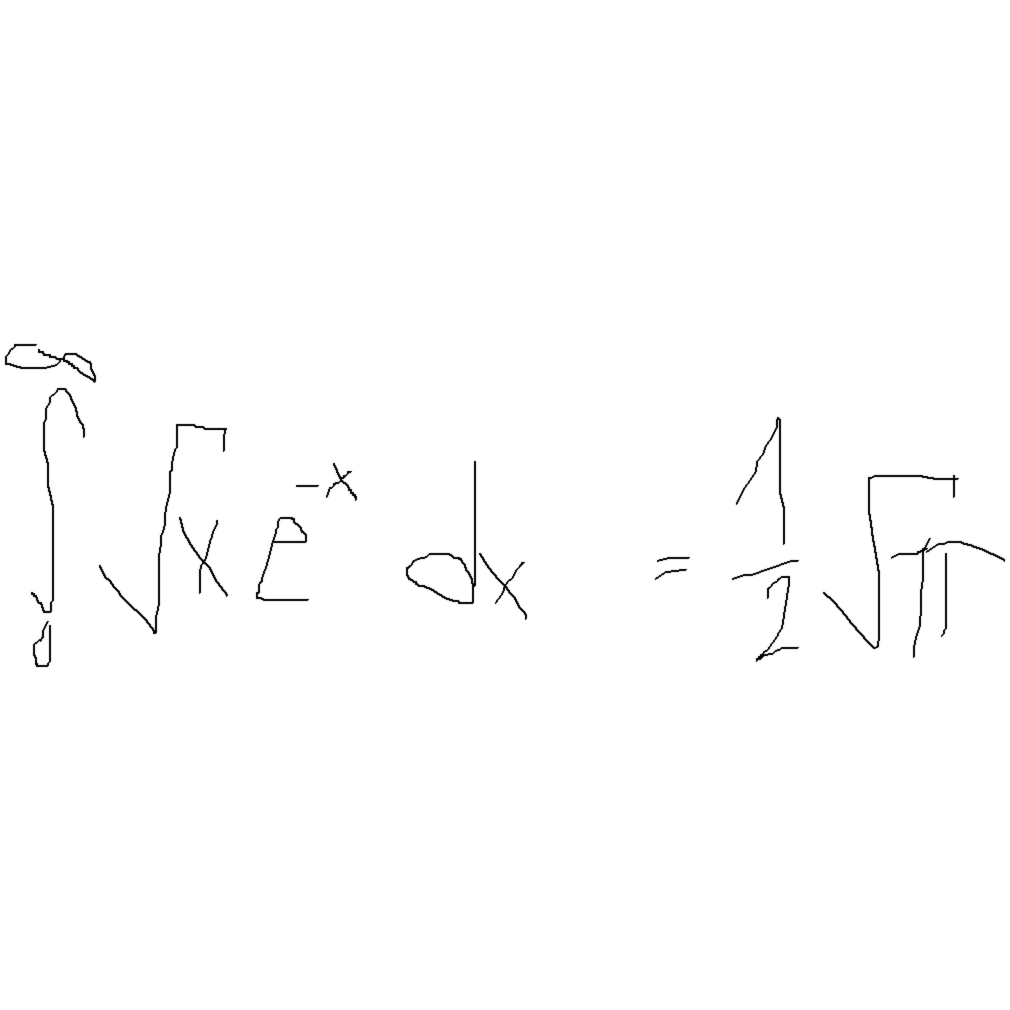 ∫₀^∞ √x e^(-x) dx = 1/2 √π